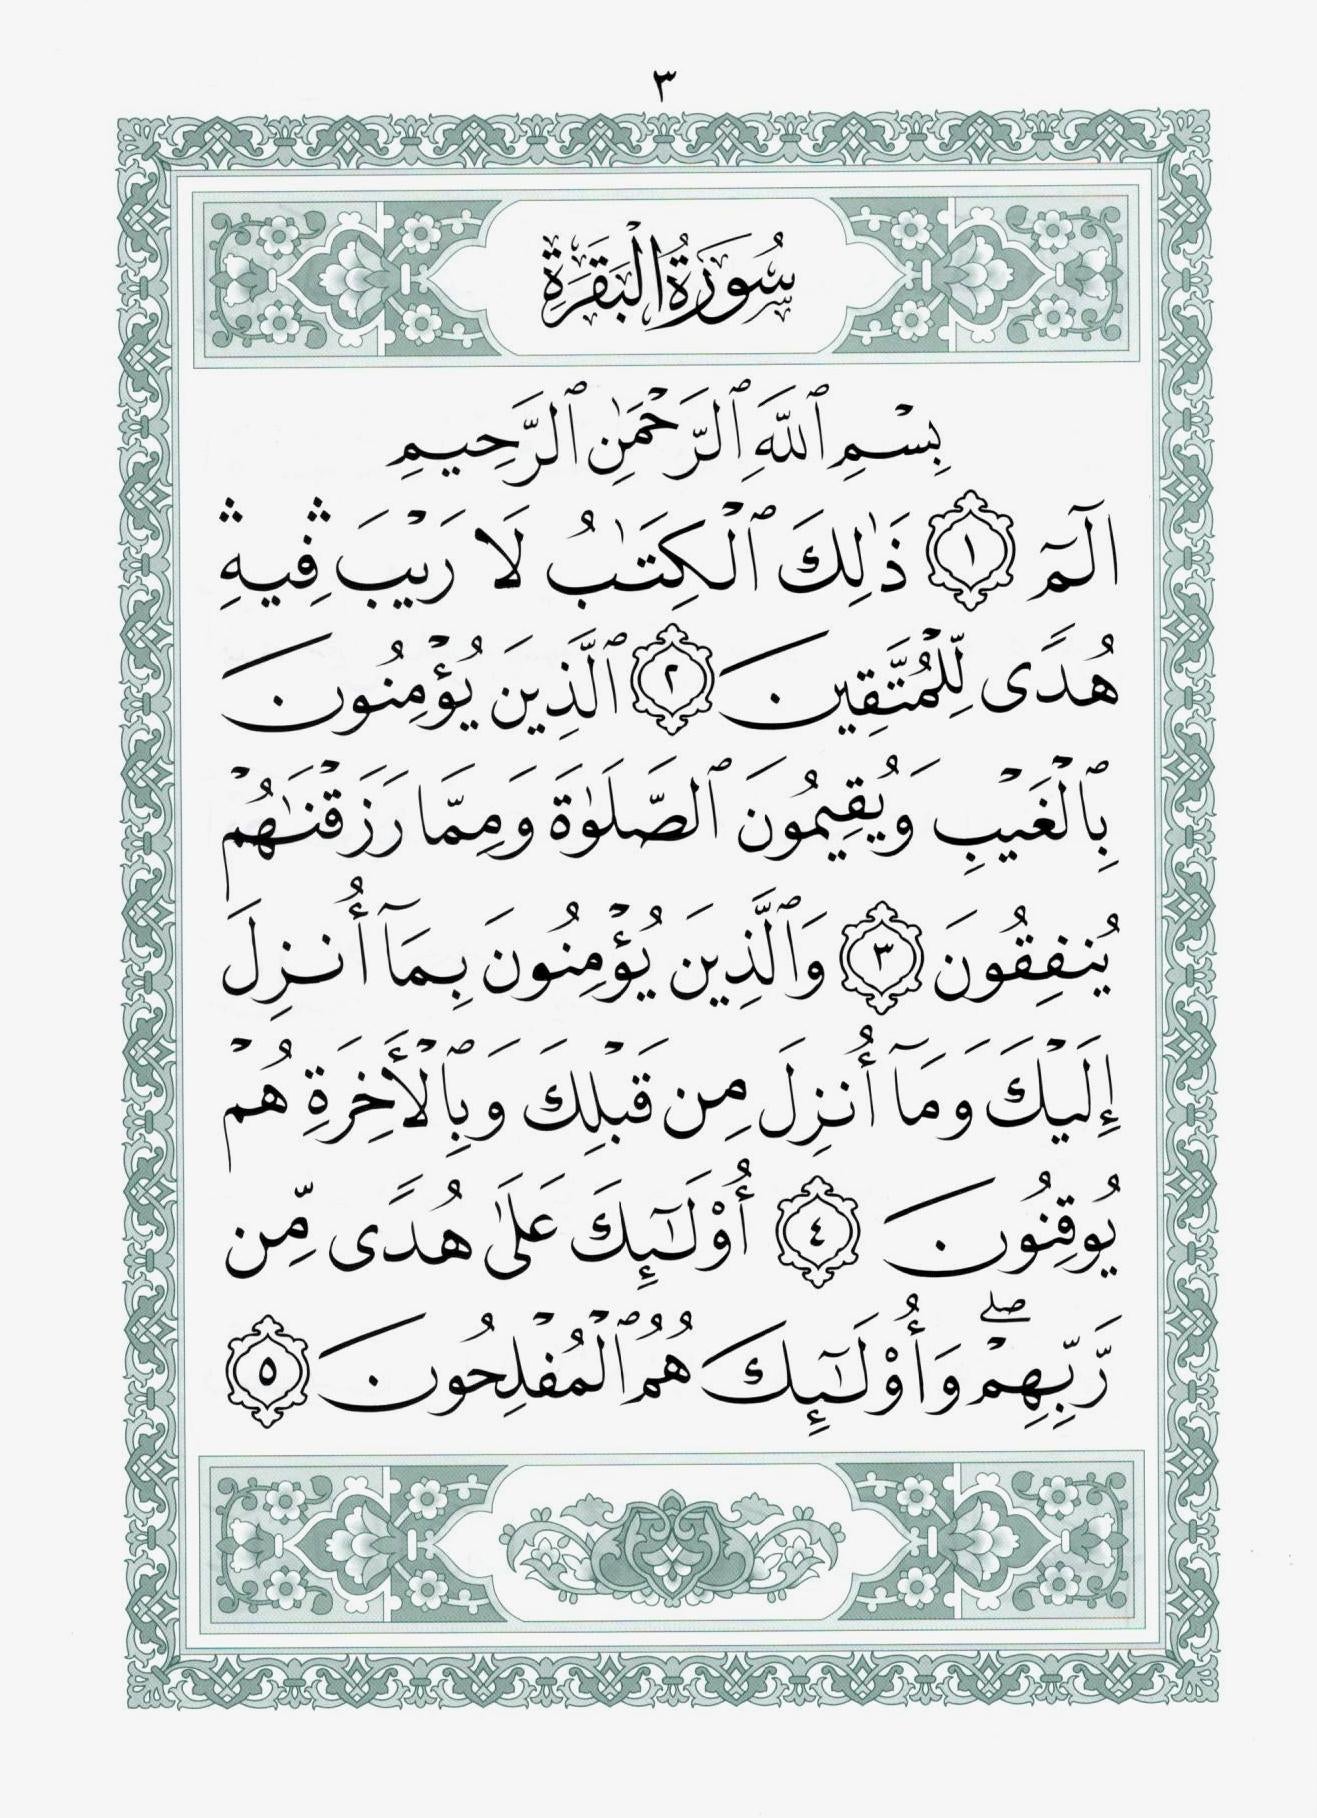 ٣
سُورَةُ الْبَقَرَةِ
بِسْمِ ٱللَّهِ ٱلرَّحْمَٰنِ ٱلرَّحِيمِ
الٓمٓ ١ ذَٰلِكَ ٱلْكِتَٰبُ لَا رَيْبَ ۛ فِيهِ ۛ
هُدًى لِّلْمُتَّقِينَ ٢ ٱلَّذِينَ يُؤْمِنُونَ
بِٱلْغَيْبِ وَيُقِيمُونَ ٱلصَّلَوٰةَ وَمِمَّا رَزَقْنَٰهُمْ
يُنفِقُونَ ٣ وَٱلَّذِينَ يُؤْمِنُونَ بِمَآ أُنزِلَ
إِلَيْكَ وَمَآ أُنزِلَ مِن قَبْلِكَ وَبِٱلْأَخِرَةِ هُمْ
يُوقِنُونَ ٤ أُوْلَٰٓئِكَ عَلَىٰ هُدًى مِّن
رَّبِّهِمْ ۖ وَأُوْلَٰٓئِكَ هُمُ ٱلْمُفْلِحُونَ ٥